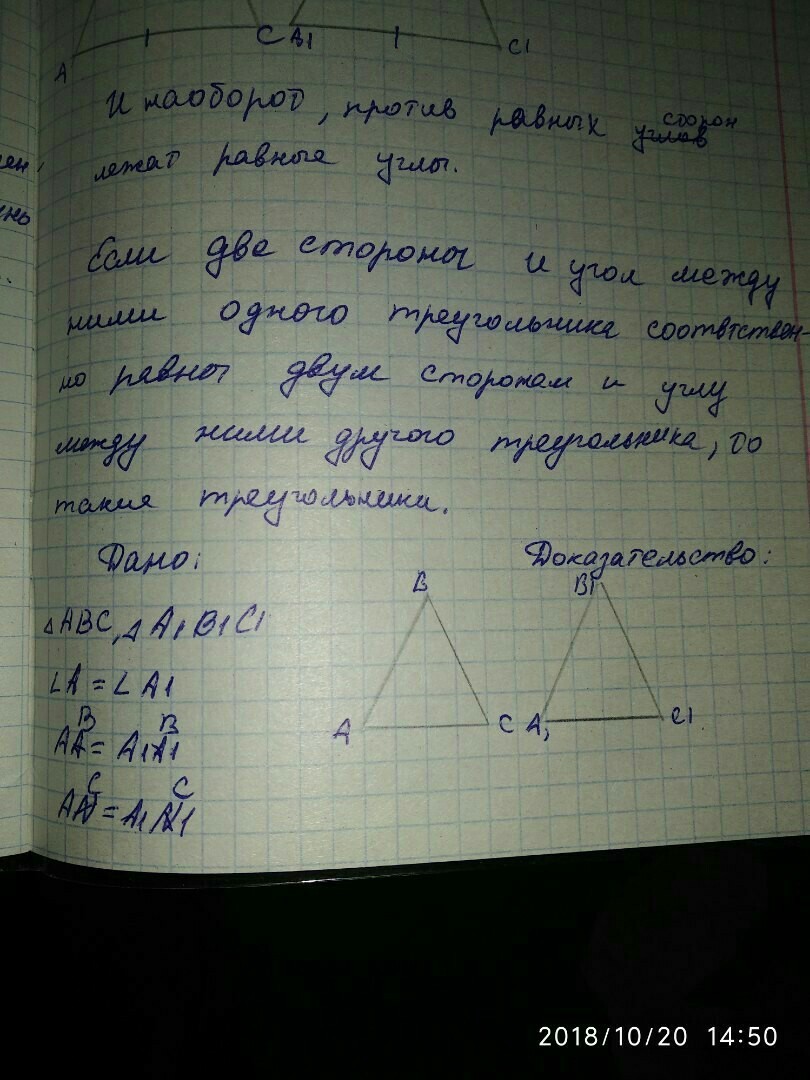 A
C A1
C1
И наоборот, против равных углов сторон
лежат равные углы.
Если две стороны и угол между
ними одного треугольника соовтствен-
но равны двум сторонам и углу
между ними другого треугольника, то
такие треугольники.
Дано:
Доказательство:
△ABC, △A1B1C1
∠A = ∠A1
AB = A1B1
AC = A1C1
B
B1
A
C A1
C1
2018/10/20 14:50